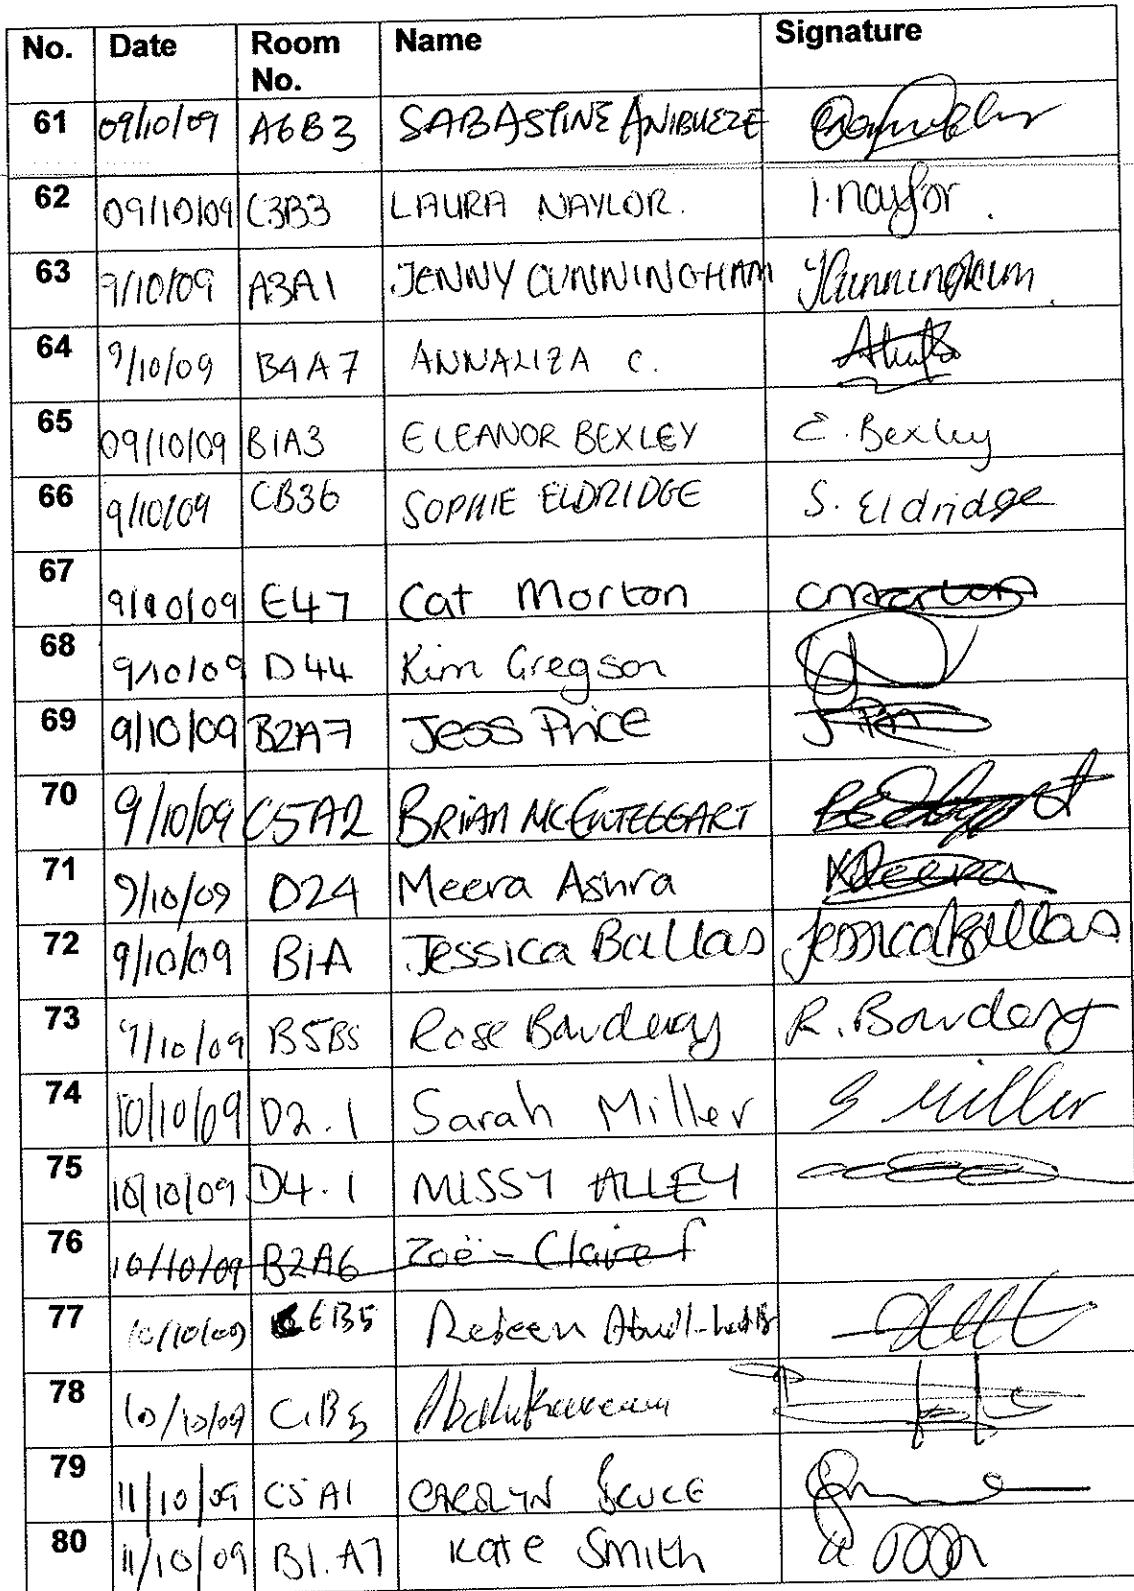 No. Date Room No. Name Signature
61 09/10/09 A6B3 SABASTINE ANIBUEZE
62 09/10/09 C3B3 LAURA NAYLOR. l.naylor.
63 9/10/09 A3A1 JENNY CUNNINGHAM JCunningham
64 9/10/09 B4A7 ANNALIZA C.
65 09/10/09 B1A3 ELEANOR BEXLEY E. Bexley
66 9/10/09 CB36 SOPHIE ELDRIDGE S. Eldridge
67 9/10/09 E47 Cat Morton CMorton
68 9/10/09 D44 Kim Gregson
69 9/10/09 B2A7 Jess Price
70 9/10/09 C5A2 BRIAN MCENTEGGART
71 9/10/09 D24 Meera Ashra
72 9/10/09 B1A Jessica Ballas Jessica Ballas
73 9/10/09 B5B5 Rose R.
74 10/10/09 D2.1 Sarah Miller S Miller
75 10/10/09 D4.1 MISSY ALLEY
76 10/10/09 B2A6 Zoë - Claire f
77 10/10/09 6B5
78 10/10/09
79 11/10/09 C5A1 CAROLYN BRUCE
80 11/10/09 B1.A7 Kate Smith